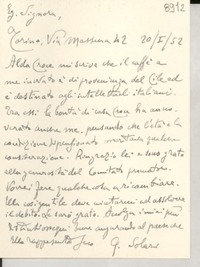 8912
Eg. Signora,
Torino, Via Massena 42 20/I/52
Alda Croce mi scrive che il caffè a
me inviato è di provenienza del Cile ed
è destinato agli intellettuali italiani.
Tra essi la bontà di casa Croce ha anno-
verato anche me, pensando che l'età e la
condizione di pensionato meritano qualche
considerazione. Ringrazio lei e sono grato
alla generosità del Comitato promotore.
Vorrei fare qualche cosa a ricambiare.
Ella così gentile deve aiutarmi ad assolvere
il debito che sarò grato. Accolga i miei più
auguri al paese che
Ella rappresenta. Suo G. Solari